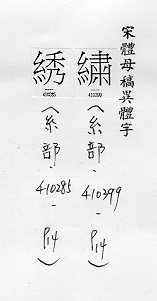 宋體母稿異體字
繡
410399
(糸部-410399-P14)
綉
410285
(糸部-410285-P14)